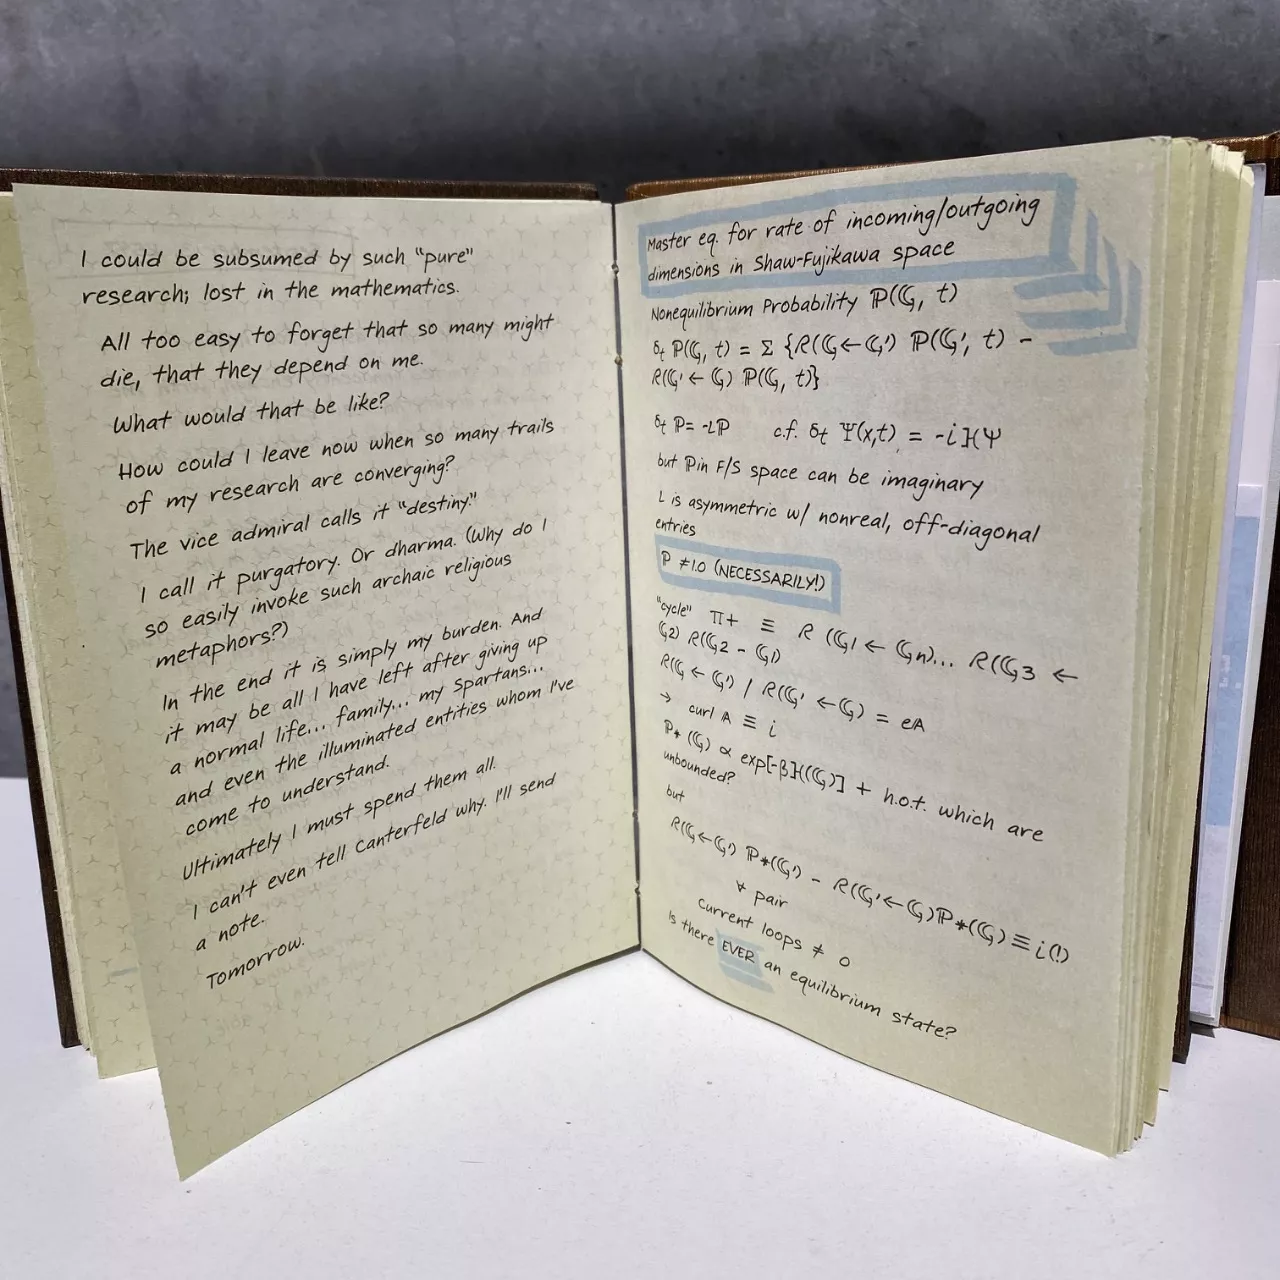 I could be subsumed by such "pure"
research; lost in the mathematics.
All too easy to forget that so many might
die, that they depend on me.
What would that be like?
How could I leave now when so many trails
of my research are converging?
The vice admiral calls it "destiny."
I call it purgatory. Or dharma. (Why do I
so easily invoke such archaic religious
metaphors?)
In the end it is simply my burden. And
it may be all I have left after giving up
a normal life... family... my Spartans...
and even the illuminated entities whom I've
come to understand.
Ultimately I must spend them all.
I can't even tell Canterfeld why. I'll send
a note.
Tomorrow.
Master eq. for rate of incoming/outgoing
dimensions in Shaw-Fujikawa space
Nonequilibrium Probability ℙ(𝔾, t)
δt ℙ(𝔾, t) = Σ {R(𝔾←𝔾') ℙ(𝔾', t) -
R(𝔾' ← 𝔾) ℙ(𝔾, t)}
δt ℙ= -Lℙ c.f. δt Ψ(x,t) = -iℋΨ
but ℙin F/S space can be imaginary
L is asymmetric w/ nonreal, off-diagonal
entries
ℙ ≠1.0 (NECESSARILY!)
"cycle" Π+ ≡ R (𝔾1 ← 𝔾n)... R(𝔾3 ←
𝔾2) R(𝔾2 - 𝔾1)
R(𝔾 ← 𝔾') / R(𝔾' ←𝔾) = e𝔸
→ curl 𝔸 ≡ i
ℙ* (𝔾) ∝ exp[-βℋ(𝔾)] + h.o.t. which are
unbounded?
but
R(𝔾←𝔾') ℙ*(𝔾') - R(𝔾'←𝔾)ℙ*(𝔾) ≡ i(!)
∀ pair
current loops ≠ 0
Is there EVER an equilibrium state?